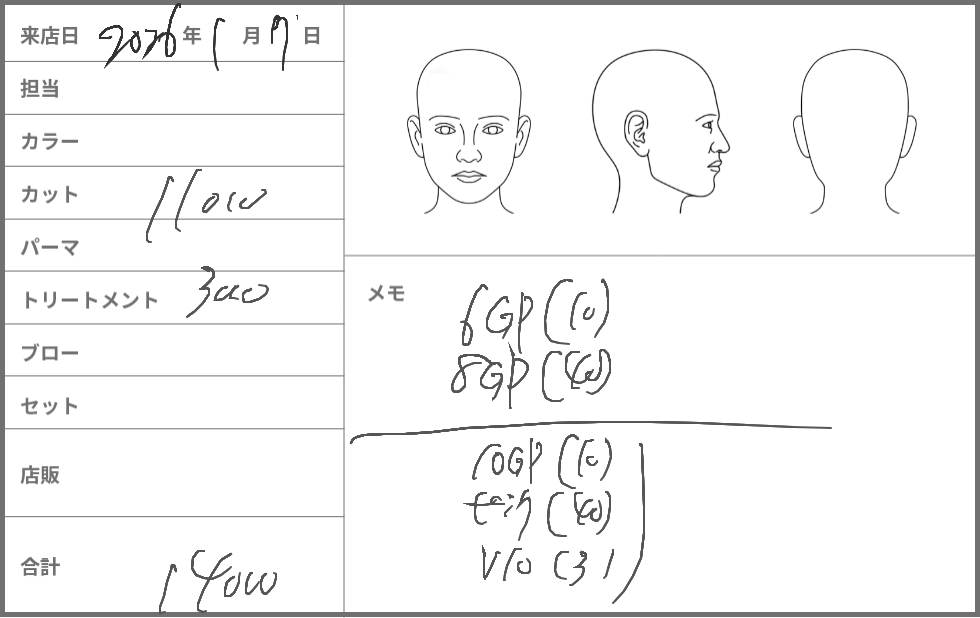 来店日 2026年1月7日
担当
カラー
カット 11000
パーマ
トリートメント 3000
ブロー
セット
店販
合計 14000
メモ
6GP (10)
8GP (40)
10GP (10)
(40)
V10 (3)